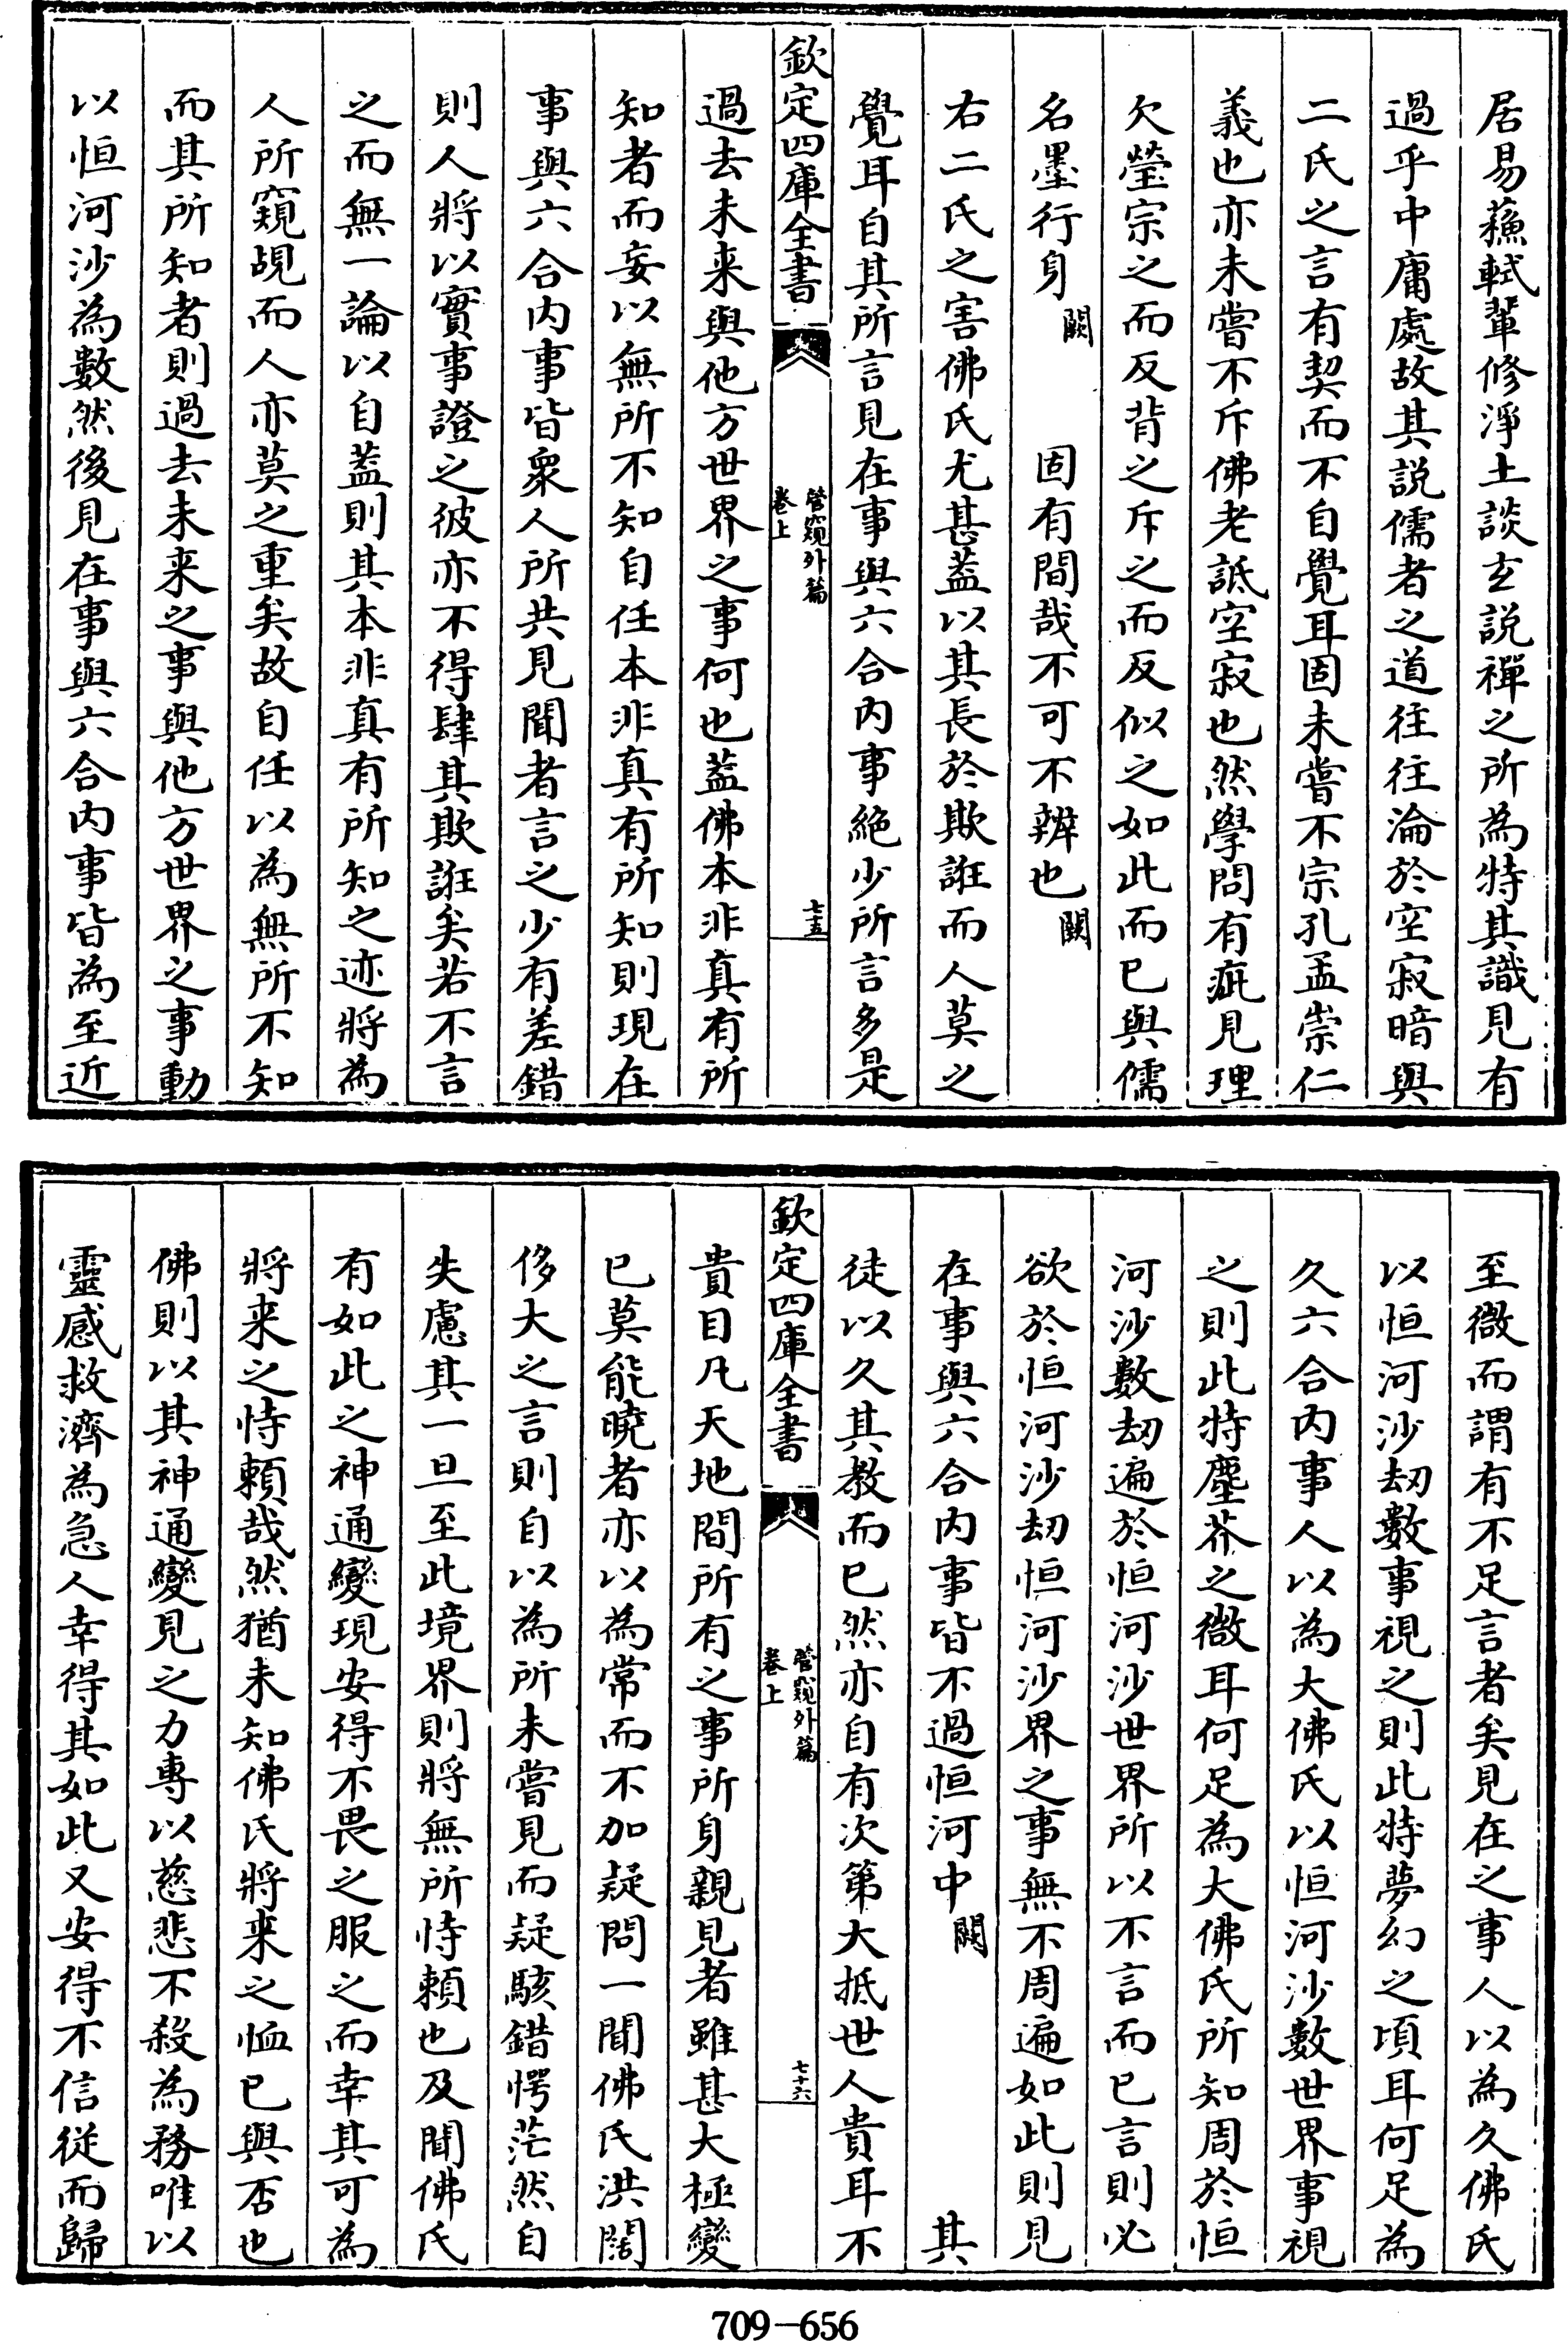 居易蘓軾輩修淨土談𤣥説禪之所為特其識見有
過乎中庸處故其説儒者之道往往淪於空寂暗與
二氏之言有契而不自覺耳固未嘗不宗孔孟崇仁
義也亦未嘗不斥佛老詆空寂也然學問有疵見理
欠瑩宗之而反背之斥之而反似之如此而已與儒
名墨行身闕固有間哉不可不辨也闕
右二氏之害佛氏尤甚葢以其長於欺誑而人莫之
覺耳自其所言見在事與六合内事絶少所言多是
欽定四庫全書
管窺外篇
卷上
七十五
過去未来與他方世界之事何也葢佛本非真有所
知者而妄以無所不知自任本非真有所知則現在
事與六合内事皆衆人所共見聞者言之少有差錯
則人將以實事證之彼亦不得肆其欺誑矣若不言
之而無一論以自葢則其本非真有所知之迹將為
人所窺覘而人亦莫之重矣故自任以為無所不知
而其所知者則過去未来之事與他方世界之事動
以恒河沙為數然後見在事與六合内事皆為至近
至微而謂有不足言者矣見在之事人以為久佛氏
以恒河沙刼數事視之則此特夢幻之頃耳何足為
久六合内事人以為大佛氏以恒河沙數世界事視
之則此特塵芥之微耳何足為大佛氏所知周於恒
河沙數刼遍於恒河沙世界所以不言而已言則必
欲於恒河沙刼恒河沙界之事無不周遍如此則見
在事與六合内事皆不過恒河中闕其
徒以久其教而已然亦自有次第大抵世人貴耳不
欽定四庫全書
管窺外篇
卷上
七十六
貴目凡天地間所有之事所身親見者雖甚大極變
已莫能曉者亦以為常而不加疑問一聞佛氏洪闊
侈大之言則自以為所未嘗見而疑駭錯愕茫然自
失慮其一旦至此境界則將無所恃賴也及聞佛氏
有如此之神通變現安得不畏之服之而幸其可為
將来之恃賴哉然猶未知佛氏將来之恤已與否也
佛則以其神通變見之力專以慈悲不殺為務唯以
靈感救濟為急人幸得其如此又安得不信從而歸
709-656